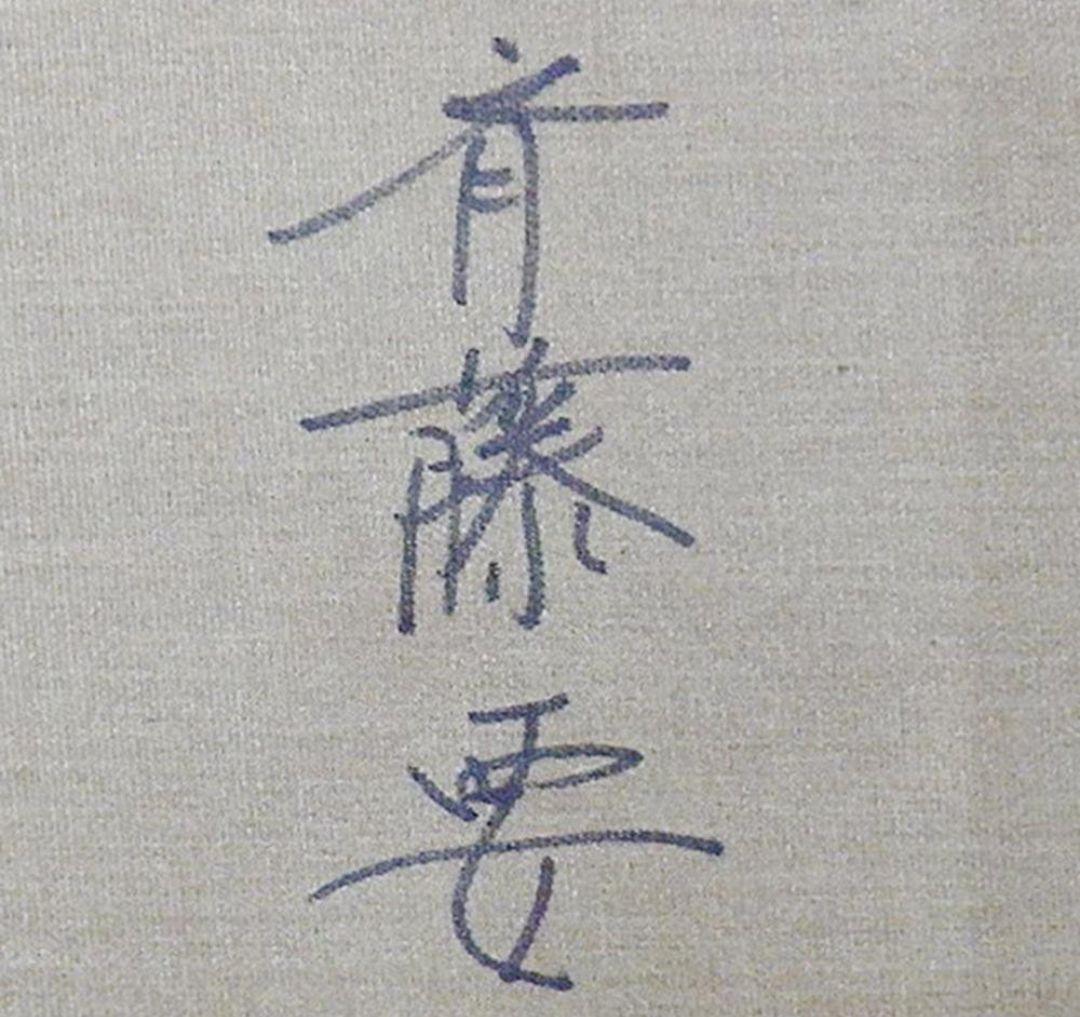 斉藤要